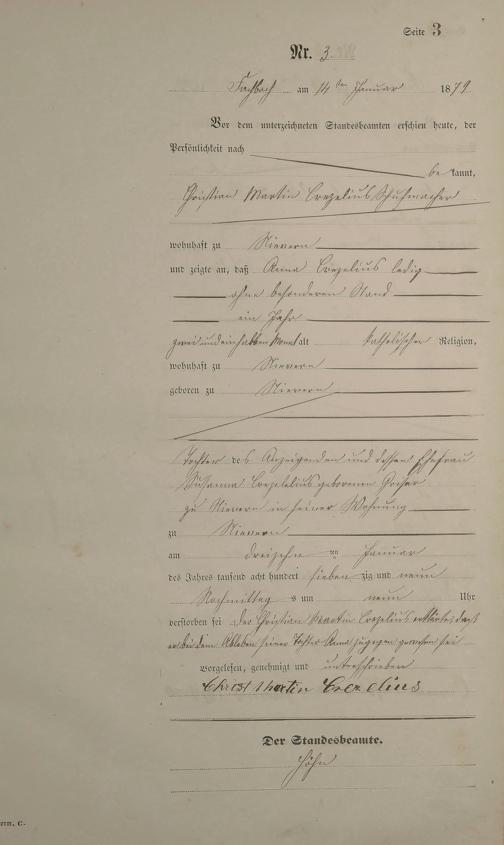 Seite 3
Nr. 3
Fachbach am 14ten Januar 1879
Vor dem unterzeichneten Standesbeamten erschien heute, der
Persönlichkeit nach
be kannt,
Christian Martin Crezelius Schuhmacher
wohnhaft zu Nievern
und zeigte an, daß Anna Crezelius ledig
ohne besonderen Stand
ein Jahr
zwei und einhalben Monat alt katholischer Religion,
wohnhaft zu Nievern
geboren zu Nievern
Tochter des Anzeigenden und dessen Ehefrau
Susanna Crezelius geborenen
zu Nievern in seiner Wohnung
zu Nievern
am dreizehn ten Januar
des Jahres tausend acht hundert sieben zig und neun
Nachmittag s um neun Uhr
verstorben sei der Christian Martin Crezelius erklärte, daß
er bei dem Ableben seiner Tochter Anna zugegen gewesen sei
Vorgelesen, genehmigt und unterschrieben
Christ Martin Crezelius
Der Standesbeamte.
Höhn
rm. C.